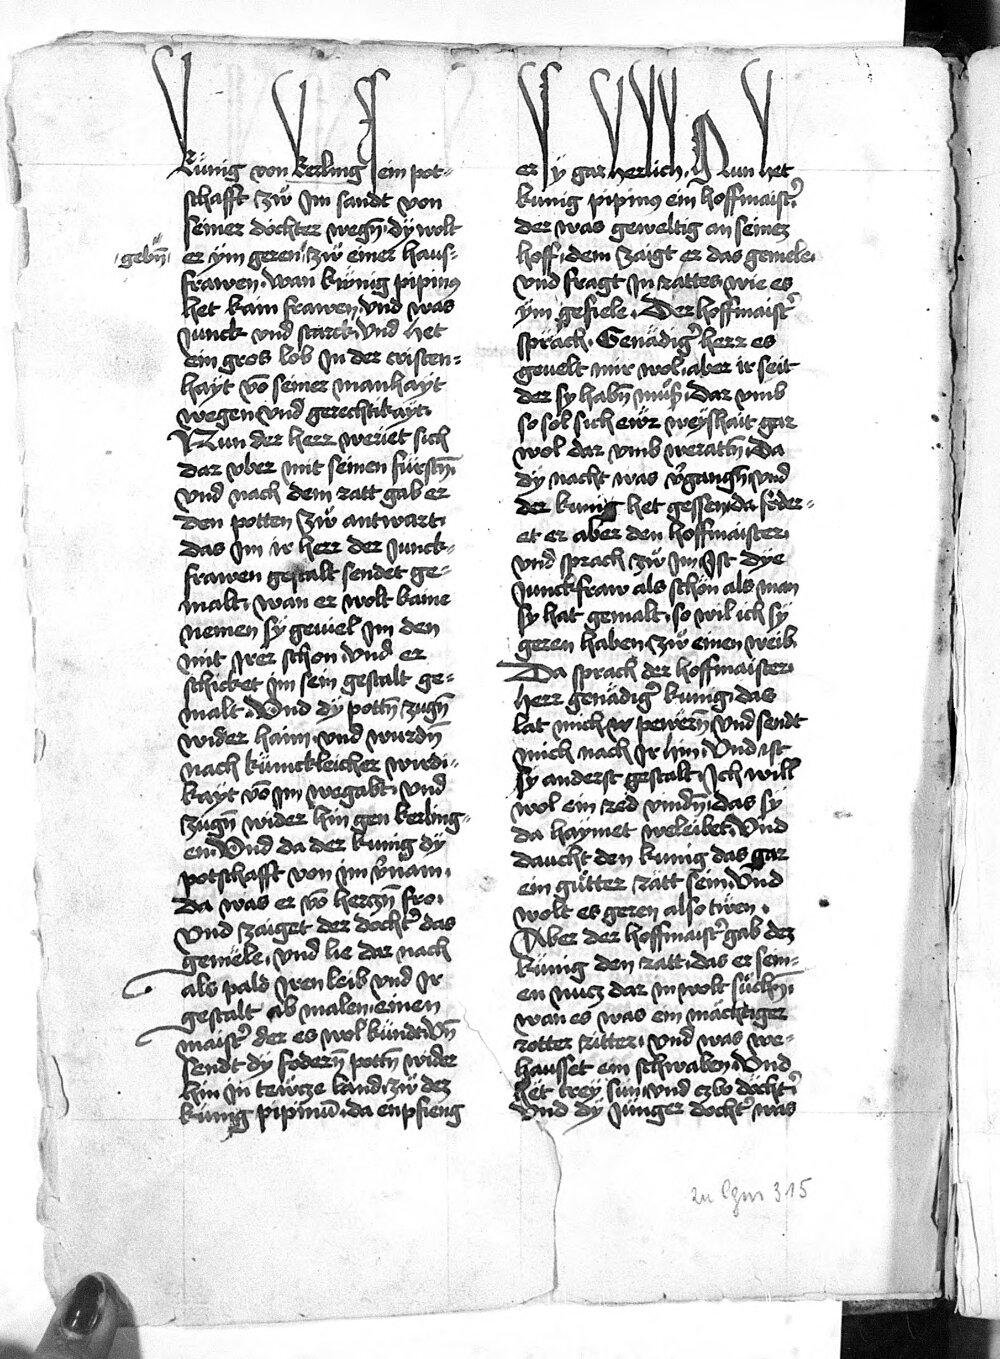 künig von kerling sein pot-
schafft zw̎ Im sandt von
seiner dochter wegn̄. dÿ wolt
er ÿm geren zw̎ einer haus-
gebn̄
frawen. wan kw̎nig pipinus
het kain frawen. vnd was
Junck vnd starck. vnd het
ein gros lob In der cristen-
haÿt vō seiner manhaÿt
wegen vnd gerechtikaÿt.
Nun der herr weriet sich
dar vber mit seinen fürstn̄
vnd nach dem ratt gab er
den potten zw̎ antwart.
das Im ir herr der Junck-
frawen gestalt sendet ge-
malt. wan er wolt kaine
nemen sÿ geviel Im den
mit Irer schon. vnd er
schicket Im sein gestalt ge-
malt. Vnd dÿ pottn̄ zugn̄
wider haim. vnd wurdn̄
nach künickleicher wirdi-
kaÿt vō Im wegabt. vnd
zugn̄ wider hin gen kerling-
en. Vnd da der kunig dÿ
potschafft von im v̓nam.
Da was er vō herczn̄ fro.
Vnd zaiget der docht̓ das
gemele. vnd lie dar nach
als pald Iren leib vnd Ir
gestalt ab malen. einen
maist̓ der es wol kündt. Vn̄
sendt dÿ fodern̄ pottn̄ wider
hin In tewcze land. zw̎ dez
kunig pipinū. da enpfieng
er sÿ gar herlich. Nun het
kunig pipinus ein hoffmaist̓
der was geweltig an seinez
hoff. dem zaigt er das gemele
vnd fragt In rattes. wie es
ÿm gefiele. Der hoffmaist̓
sprach. Genädig̓ herr es
gevelt mir wol. aber ir seit
der sÿ habn̄ müß. Dar vmb
so sol sich ewr weÿshait gar
wol dar vmb werattn̄. Da
dÿ nacht was v̓gangn̄. vnd
der kunig het gessen. da föder-
et er aber den hoffmaister.
vnd sprach zw̎ im. Ist dÿe
Junckfraw als schön als man
sÿ hat gemalt. so wil ich sÿ
geren haben zw̎ einen weib.
Da sprach der hoffmaister.
herr genädig̓ kunig. das
lat mich pewern̄. vnd sendt
mich nach Ir hin. Vnd ist
sÿ anderst gestalt. Ich will
wol ein red vindn̄. das sÿ
da haÿmet weleibet. Vnd
daucht den kunig das gar
ein gutter rätt sein. Vnd
wolt es geren also tüen.
Aber der hoffmaist̓ gab dez
künig den ratt. das er sein-
en nucz dar in wolt süchn̄.
wan es was ein mächtiger
rotter ritter. vnd was we-
hausset ein schwaben. Vnd
het trey sun. vnd czbo döcht̓
Vnd dÿ Jünger docht̓ was
zu Cgm 315